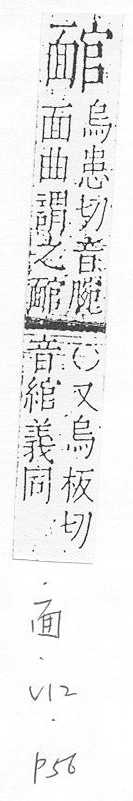 烏患切音腕
面曲謂之
〇又烏板切
音綰義同
面
V12
P56